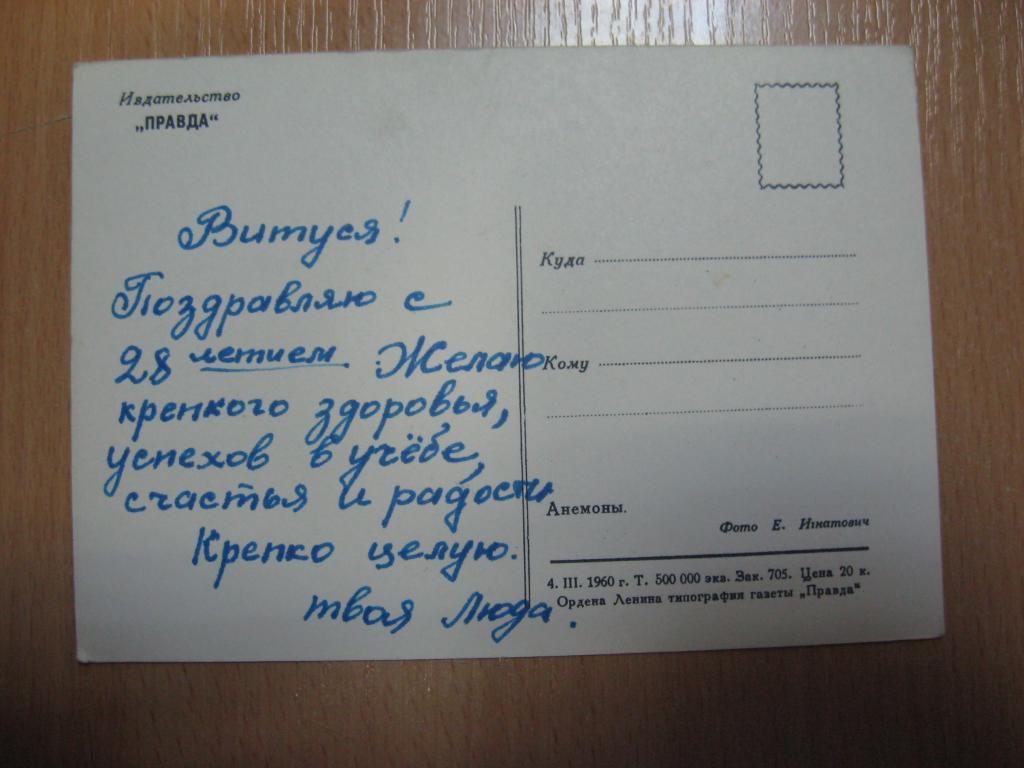 Издательство
„ПРАВДА“
Витуся!
Поздравляю с
28 летием. Желаю
крепкого здоровья,
успехов в учёбе,
счастья и радости
Крепко целую.
твоя Люда.
Куда
Кому
Анемоны.
Фото Е. Игнатович
4. III. 1960 г. Т. 500 000 экз. Зак. 705. Цена 20 к.
Ордена Ленина типография газеты „Правда“